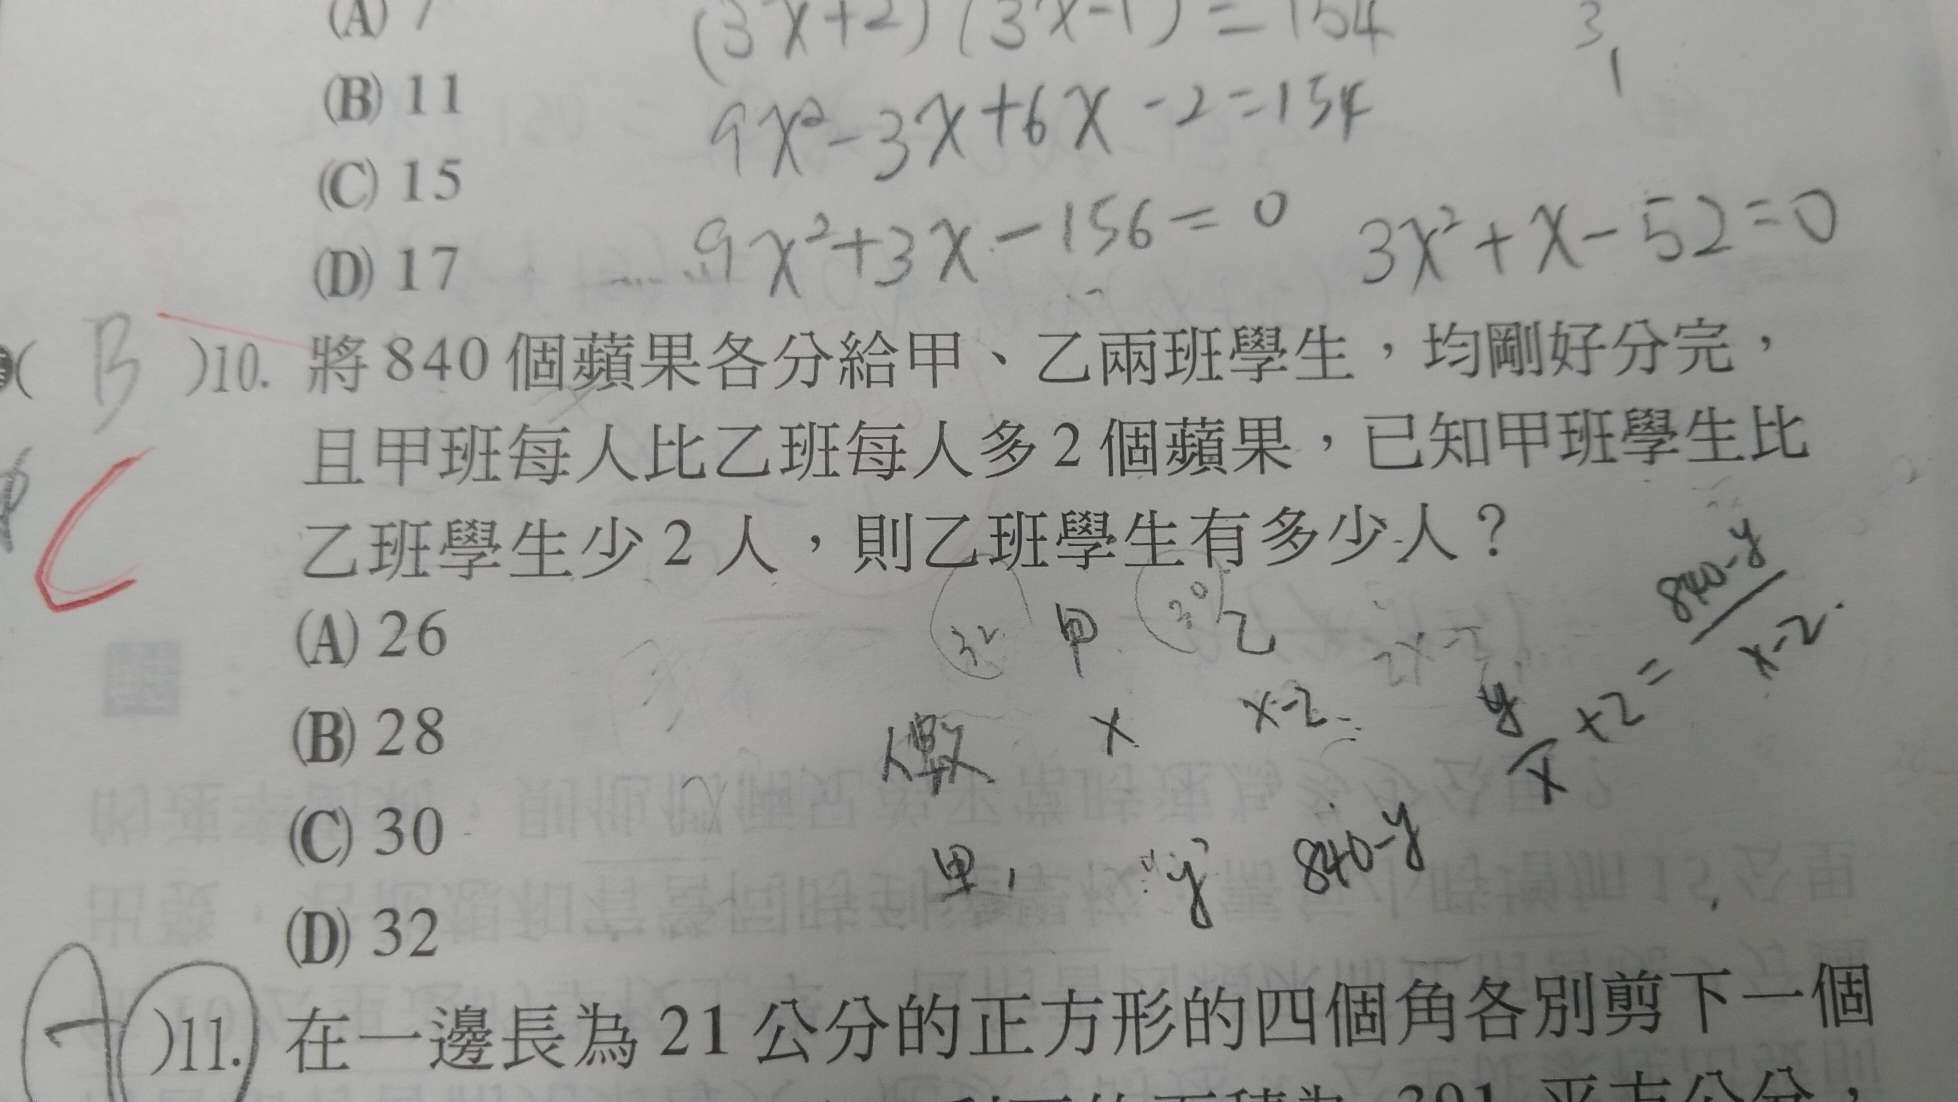 (A) 7
(3x+2)(3x-1)=154
3
1
(B) 11
9x²-3x+6x-2=154
(C) 15
(D) 17
9x²+3x-156=0
3x²+x-52=0
( B )10. 將 840 個蘋果各分給甲、乙兩班學生，均剛好分完，
且甲班每人比乙班每人多 2 個蘋果，已知甲班學生比
C
乙班學生少 2 人，則乙班學生有多少人？
(A) 26
32 甲 30 乙
(B) 28
人數 x x-2
y/x+2=840-y/x-2
(C) 30
y 840-y
(D) 32
A )11. 在一邊長為 21 公分的正方形的四個角各別剪下一個